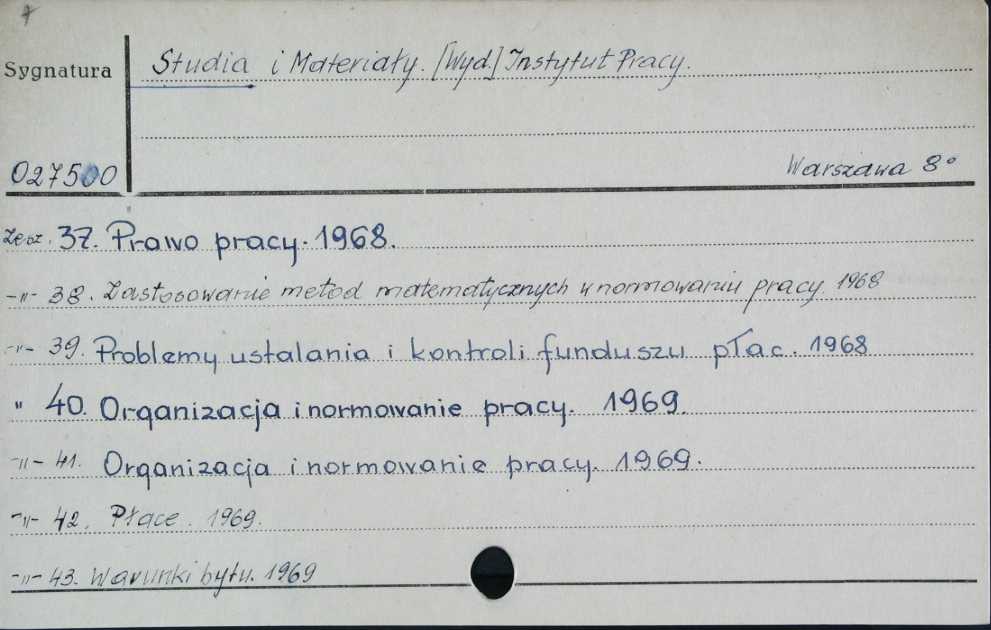 7
Studia i Materiały. [Wyd.] Instytut Pracy.
Sygnatura
027500
Warszawa 8°
Zesz. 37. Prawo pracy. 1968.
-"- 38. Zastosowanie metod matematycznych w normowaniu pracy. 1968
-"- 39. Problemy ustalania i kontroli funduszu płac. 1968
" 40. Organizacja i normowanie pracy. 1969.
-"- 41. Organizacja i normowanie pracy. 1969.
-"- 42. Płace. 1969.
-"- 43. Warunki bytu. 1969